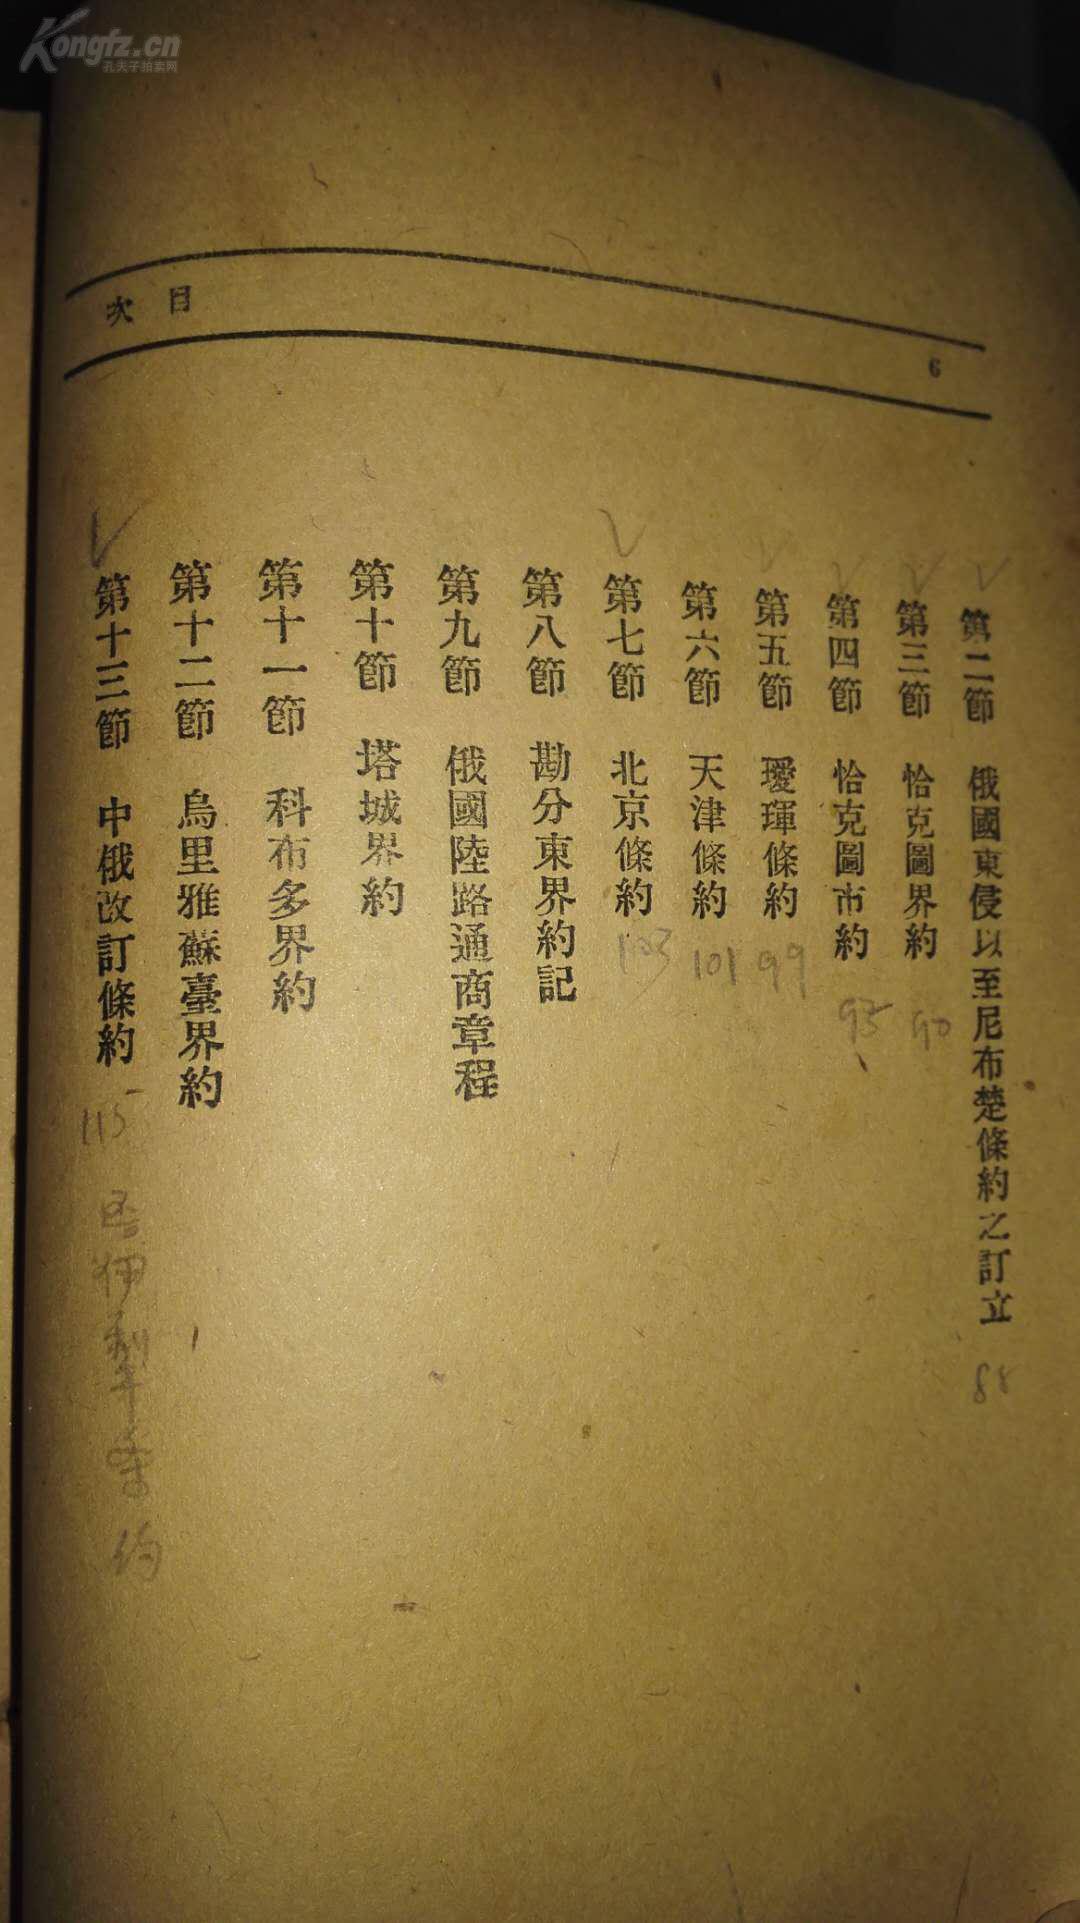 Kongfz.cn
孔夫子拍卖网
目次
6
第二節 俄國東侵以至尼布楚條約之訂立 88
第三節 恰克圖界約 90
第四節 恰克圖市約 95
第五節 璦琿條約 99
第六節 天津條約 101
第七節 北京條約 103
第八節 勘分東界約記
第九節 俄國陸路通商章程
第十節 塔城界約
第十一節 科布多界約
第十二節 烏里雅蘇臺界約
第十三節 中俄改訂條約 115 伊犁条约